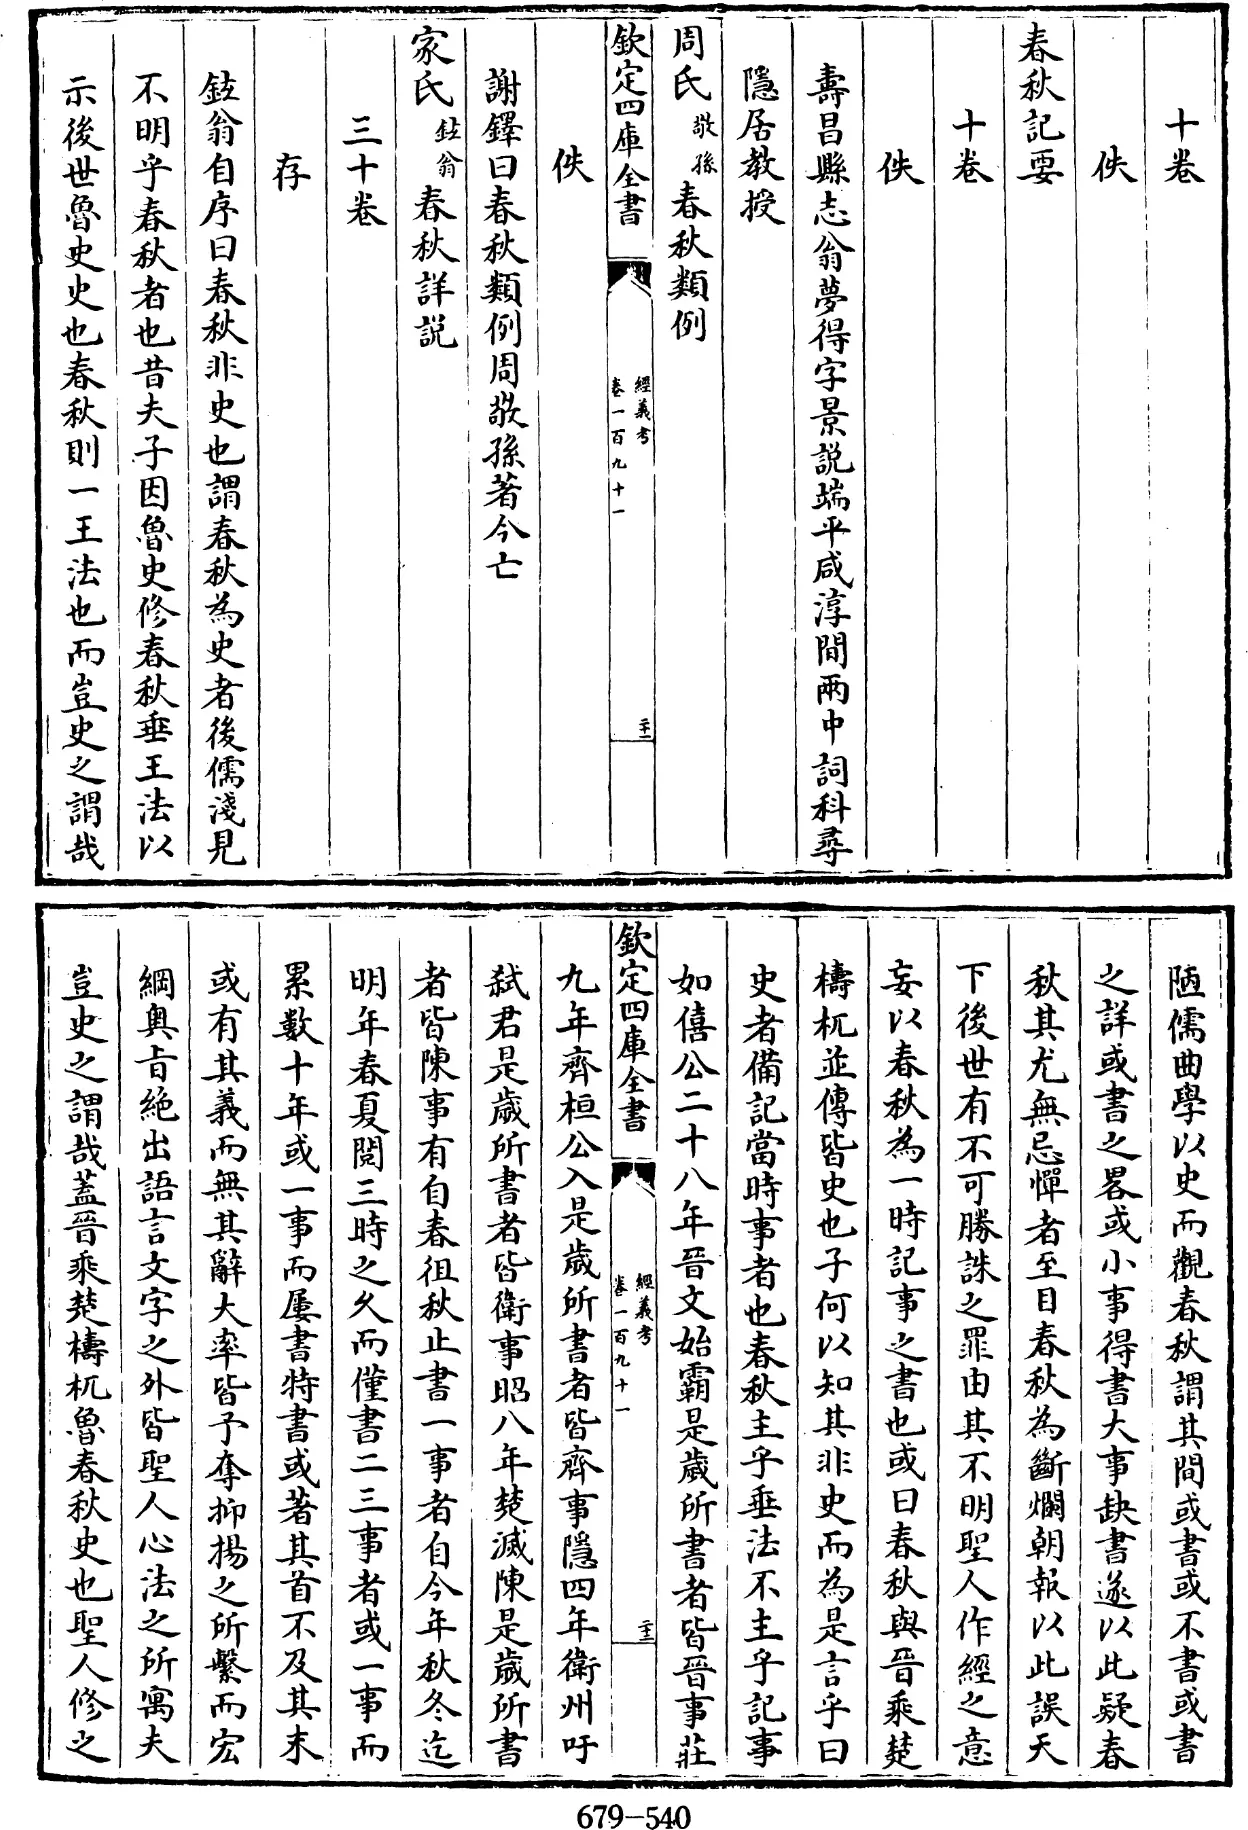 十卷
佚
春秋記要
十卷
佚
壽昌縣志翁夢得字景説端平咸淳間兩中詞科尋
隱居教授
周氏敬孫春秋類例
欽定四庫全書
經義考
卷一百九十一
二十一
佚
謝鐸曰春秋類例周敬孫著今亡
家氏鉉翁春秋詳説
三十卷
存
鉉翁自序曰春秋非史也謂春秋為史者後儒淺見
不明乎春秋者也昔夫子因魯史修春秋垂王法以
示後世魯史史也春秋則一王法也而豈史之謂哉
陋儒曲學以史而觀春秋謂其間或書或不書或書
之詳或書之畧或小事得書大事缺書遂以此疑春
秋其尤無忌憚者至目春秋為斷爛朝報以此誤天
下後世有不可勝誅之罪由其不明聖人作經之意
妄以春秋為一時記事之書也或曰春秋與晉乘楚
檮杌並傳皆史也子何以知其非史而為是言乎曰
史者備記當時事者也春秋主乎垂法不主乎記事
如僖公二十八年晉文始霸是歲所書者皆晉事莊
欽定四庫全書
經義考
卷一百九十一
二十二
九年齊桓公入是歲所書者皆齊事隱四年衛州吁
弑君是歲所書者皆衛事昭八年楚滅陳是歲所書
者皆陳事有自春徂秋止書一事者自今年秋冬迄
明年春夏閱三時之久而僅書二三事者或一事而
累數十年或一事而屢書特書或著其首不及其末
或有其義而無其辭大率皆予奪抑揚之所繫而宏
綱奧㫖絶出語言文字之外皆聖人心法之所寓夫
豈史之謂哉蓋晉乘楚檮杌魯春秋史也聖人修之
679-540